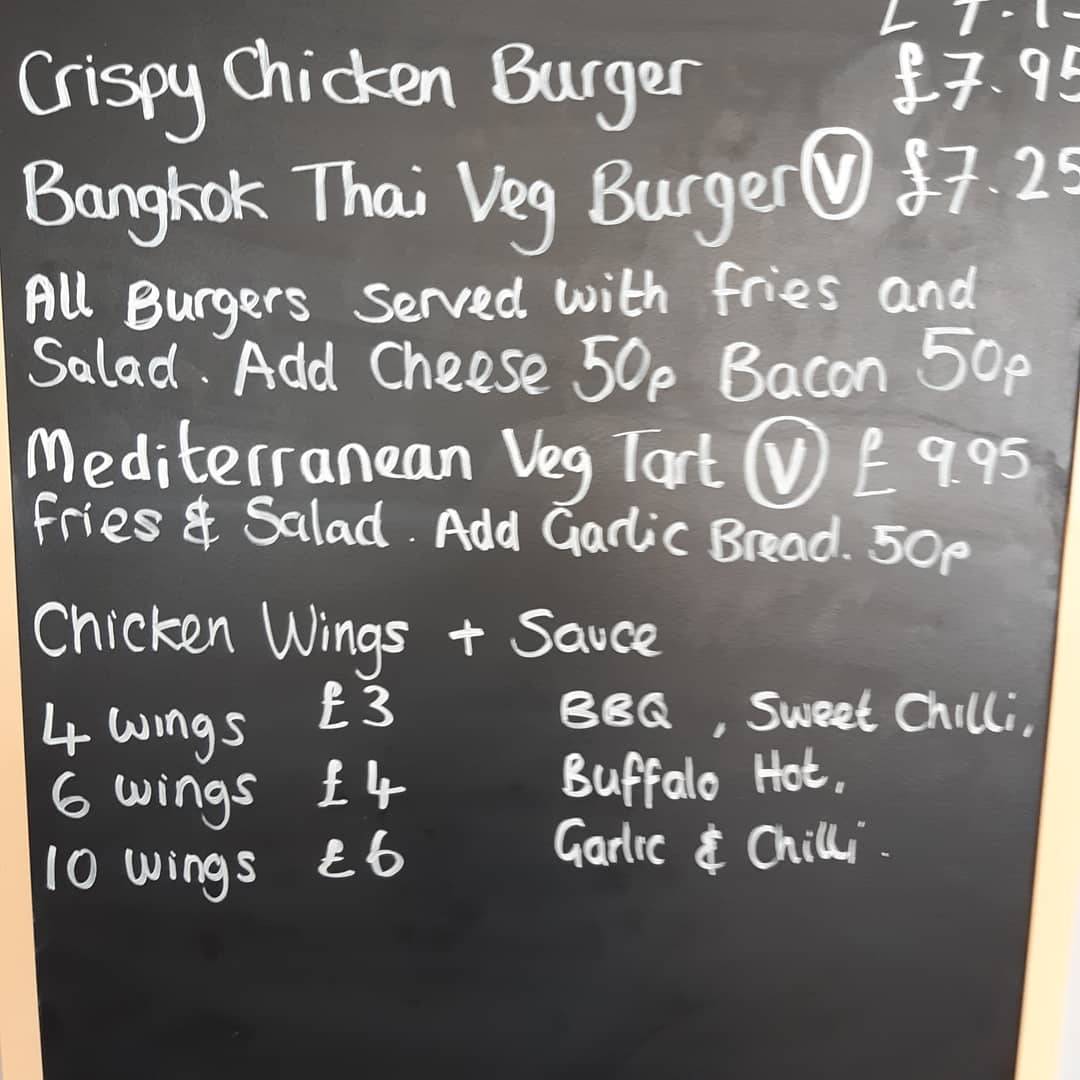 Crispy Chicken Burger £7.95
Bangkok Thai Veg Burger V £7.25
All Burgers Served with fries and
Salad. Add Cheese 50p Bacon 50p
Mediterranean Veg Tart V £9.95
Fries & Salad. Add Garlic Bread. 50p
Chicken Wings + Sauce
4 wings £3 BBQ, Sweet Chilli,
6 wings £4 Buffalo Hot,
10 wings £6 Garlic & Chilli.